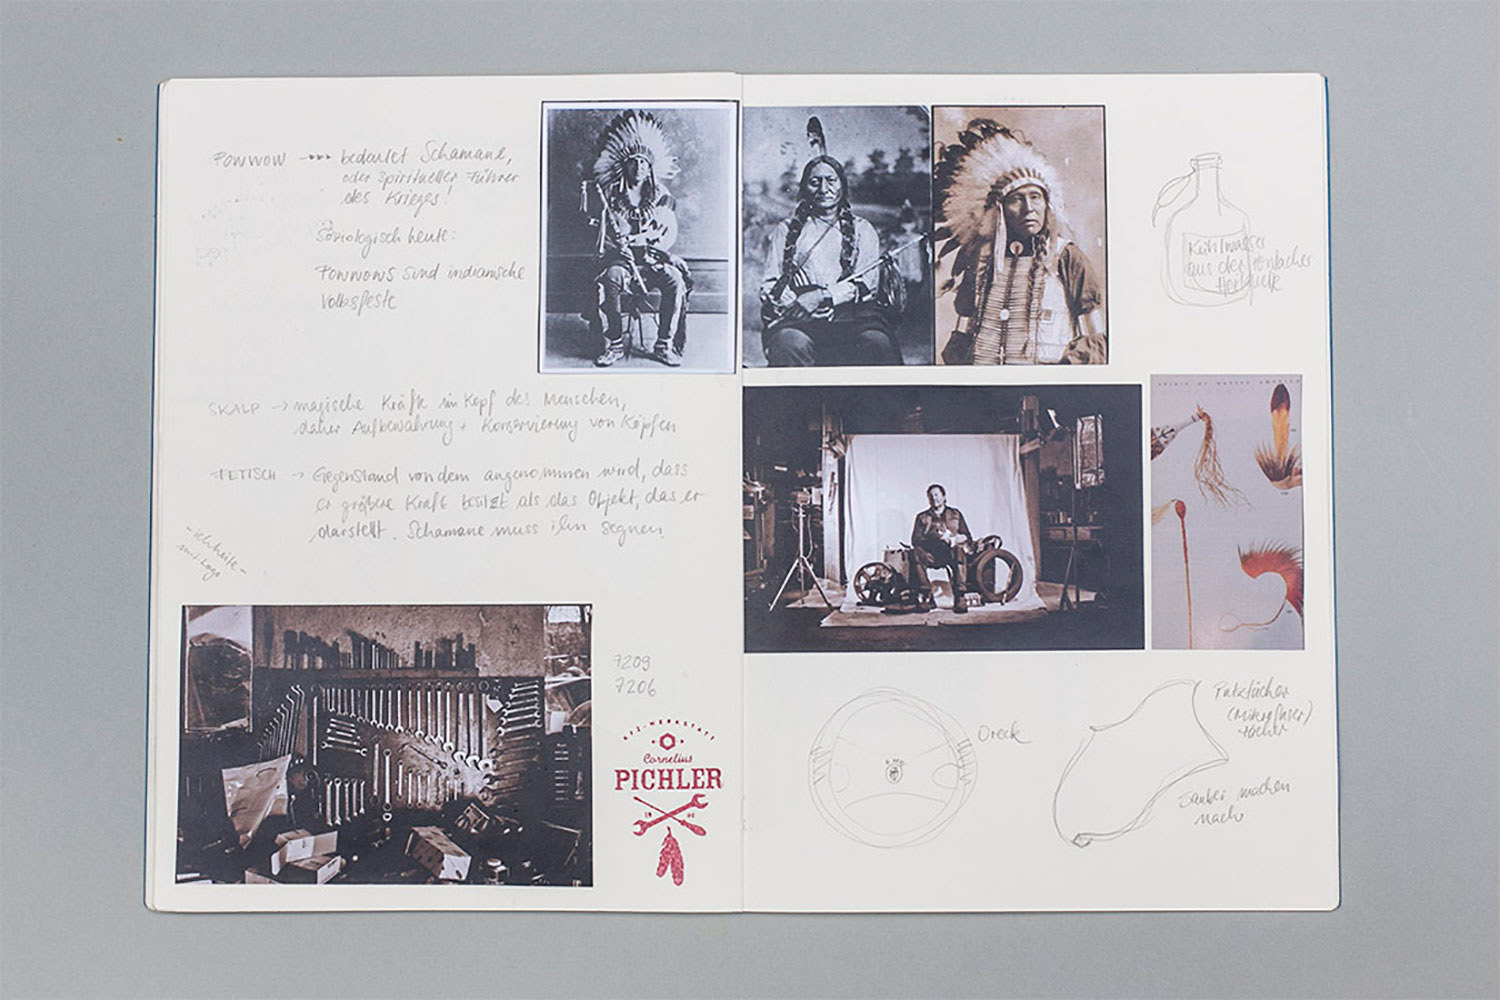 POWWOW → bedeutet Schamane,
oder spiritueller Führer
des Krieges!
Soziologisch heute:
Powwows sind indianische
Volksfeste
SKALP → magische Kräfte im Kopf des Menschen,
daher Aufbewahrung + Konservierung von Köpfen
FETISCH → Gegenstand von dem angenommen wird, dass
er größere Kraft besitzt als das Objekt, das er
darstellt. Schamane muss ihn segnen
mit Logo
7209
7206
KFZ-WERKSTATT
Cornelius
PICHLER
19
Kühlwasser
aus der
SPIRIT OF NATIVE AMERICA
Dreck
Putztücher
(Mikrofaser)
tücher
Sauber machen